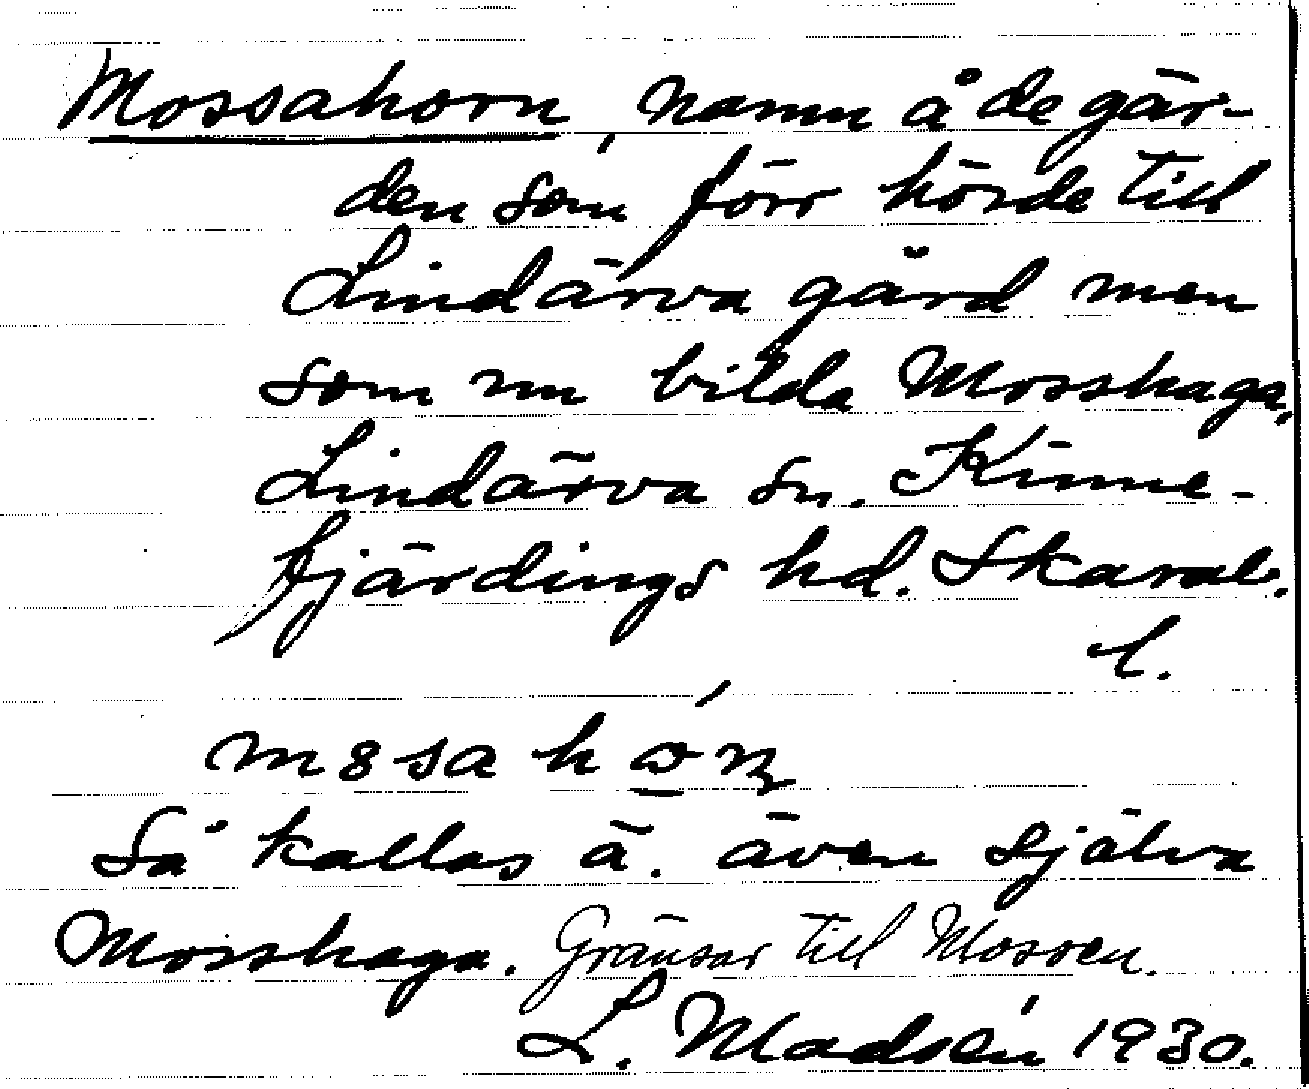 Mossahorn, namn å de gär-
den som förr hörde till
Lindärva gård men
som nu bilda Mosshaga,
Lindärva sn. Kinne-
fjärdings hd. Skarab.
l.
Så kallas ä. även själva
Mosshaga. Gränsar till Mossen.
L. Madsén 1930.